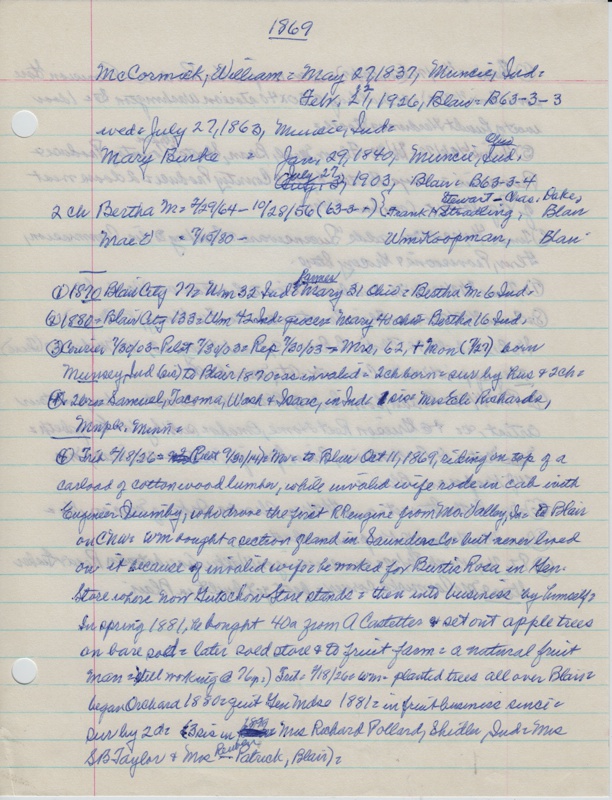 1869
McCormick, William = May 27, 1837, Muncie, Ind =
Febr. 27, 1926, Blair = B63-3-3
wed = July 27, 1863, Muncie, Ind =
Mary Burke = Jan. 29, 1840, Muncie, Ind.
July 27, 1903, Blair = B63-3-4
2 ch Bertha M = 2/29/64 - 10/28/56 (63-3-) { Stewart - Chas. Dakes
Frank H Stradling, Blair
Mae = 7/15/80 - Wm Koopman, Blair
Farmer
(1) 1870 Blair City 776 Wm 32 Ind = Mary 31 Ohio = Bertha M 6 Ind.
(2) 1880 = Blair City 133 = Wm 42 Ind grocer Mary 40 Ohio Bertha 16 Ind.
(3) Courier 7/30/03 - Pilot 7/30/03 = Rep 7/30/03 = Mrs, 62, + Mon (7/27) born
Munsey, Ind to Blair 1870 = as invalid = 2 ch born = sur by Hus & 2 ch =
2 bro = Samuel, Tacoma, Wash & Isaac, in Ind 1 sis = Mrs Richards,
Mnpls. Minn =
Trib 2/18/26 = 7/30/14) = Mr = to Blair Oct 11, 1869, riding on top of a
carload of cottonwood lumber, while invalid wife rode in cab with
Engineer Quimby, who drove the first RR engine from Mo. Valley, Ia = to Blair
on CNW = Wm bought a section of land in Saunders Co but never lived
on it because of invalid wife = he worked for Rosa in Gen.
Store where now Gutschow Store stands = then into business by himself =
In spring 1881, he bought 40a from A Castetter & set out apple trees
on bare sod = later sold store & to fruit farm = a natural fruit
man = still working @ 76 = ) Trib = 2/18/26 = Wm = planted trees all over Blair =
began Orchard 1880 = quit Gen Mdse 1881 = in fruit business since =
sur by 2 d = (3 sis in 1899 = Mrs Richard Pollard, Ind = Mrs
S B Taylor & Mrs Reuben Patrick, Blair) =